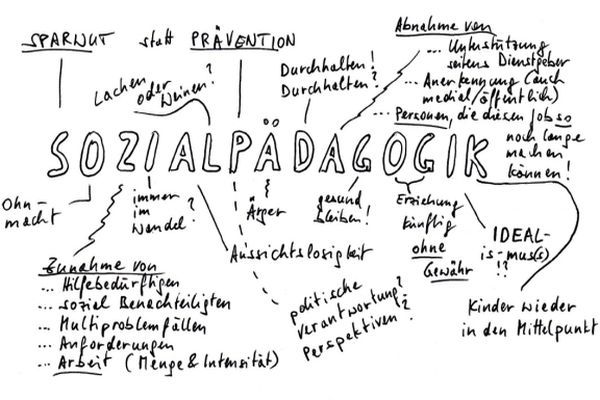 SPARWUT statt PRÄVENTION
Lachen
oder
Weinen?
Durchhalten!
Durchhalten?
Abnahme von
... Unterstützung
seitens Dienstgeber
... Anerkennung (auch
medial/öffentlich)
... Personen, die diesen Job so
noch lange
machen
können!
SOZIALPÄDAGOGIK
Ohn-
macht
immer
im
Wandel?
Ärger
gesund
bleiben!
Erziehung
künftig
ohne
Gewähr
IDEAL-
is-mus(s)
!?
Aussichtslosigkeit
Zunahme von
... Hilfebedürftigen
... sozial Benachteiligten
... Multiproblemfällen
... Anforderungen
... Arbeit (Menge & Intensität)
politische
Verantwortung?
Perspektiven?
Kinder wieder
in den Mittelpunkt